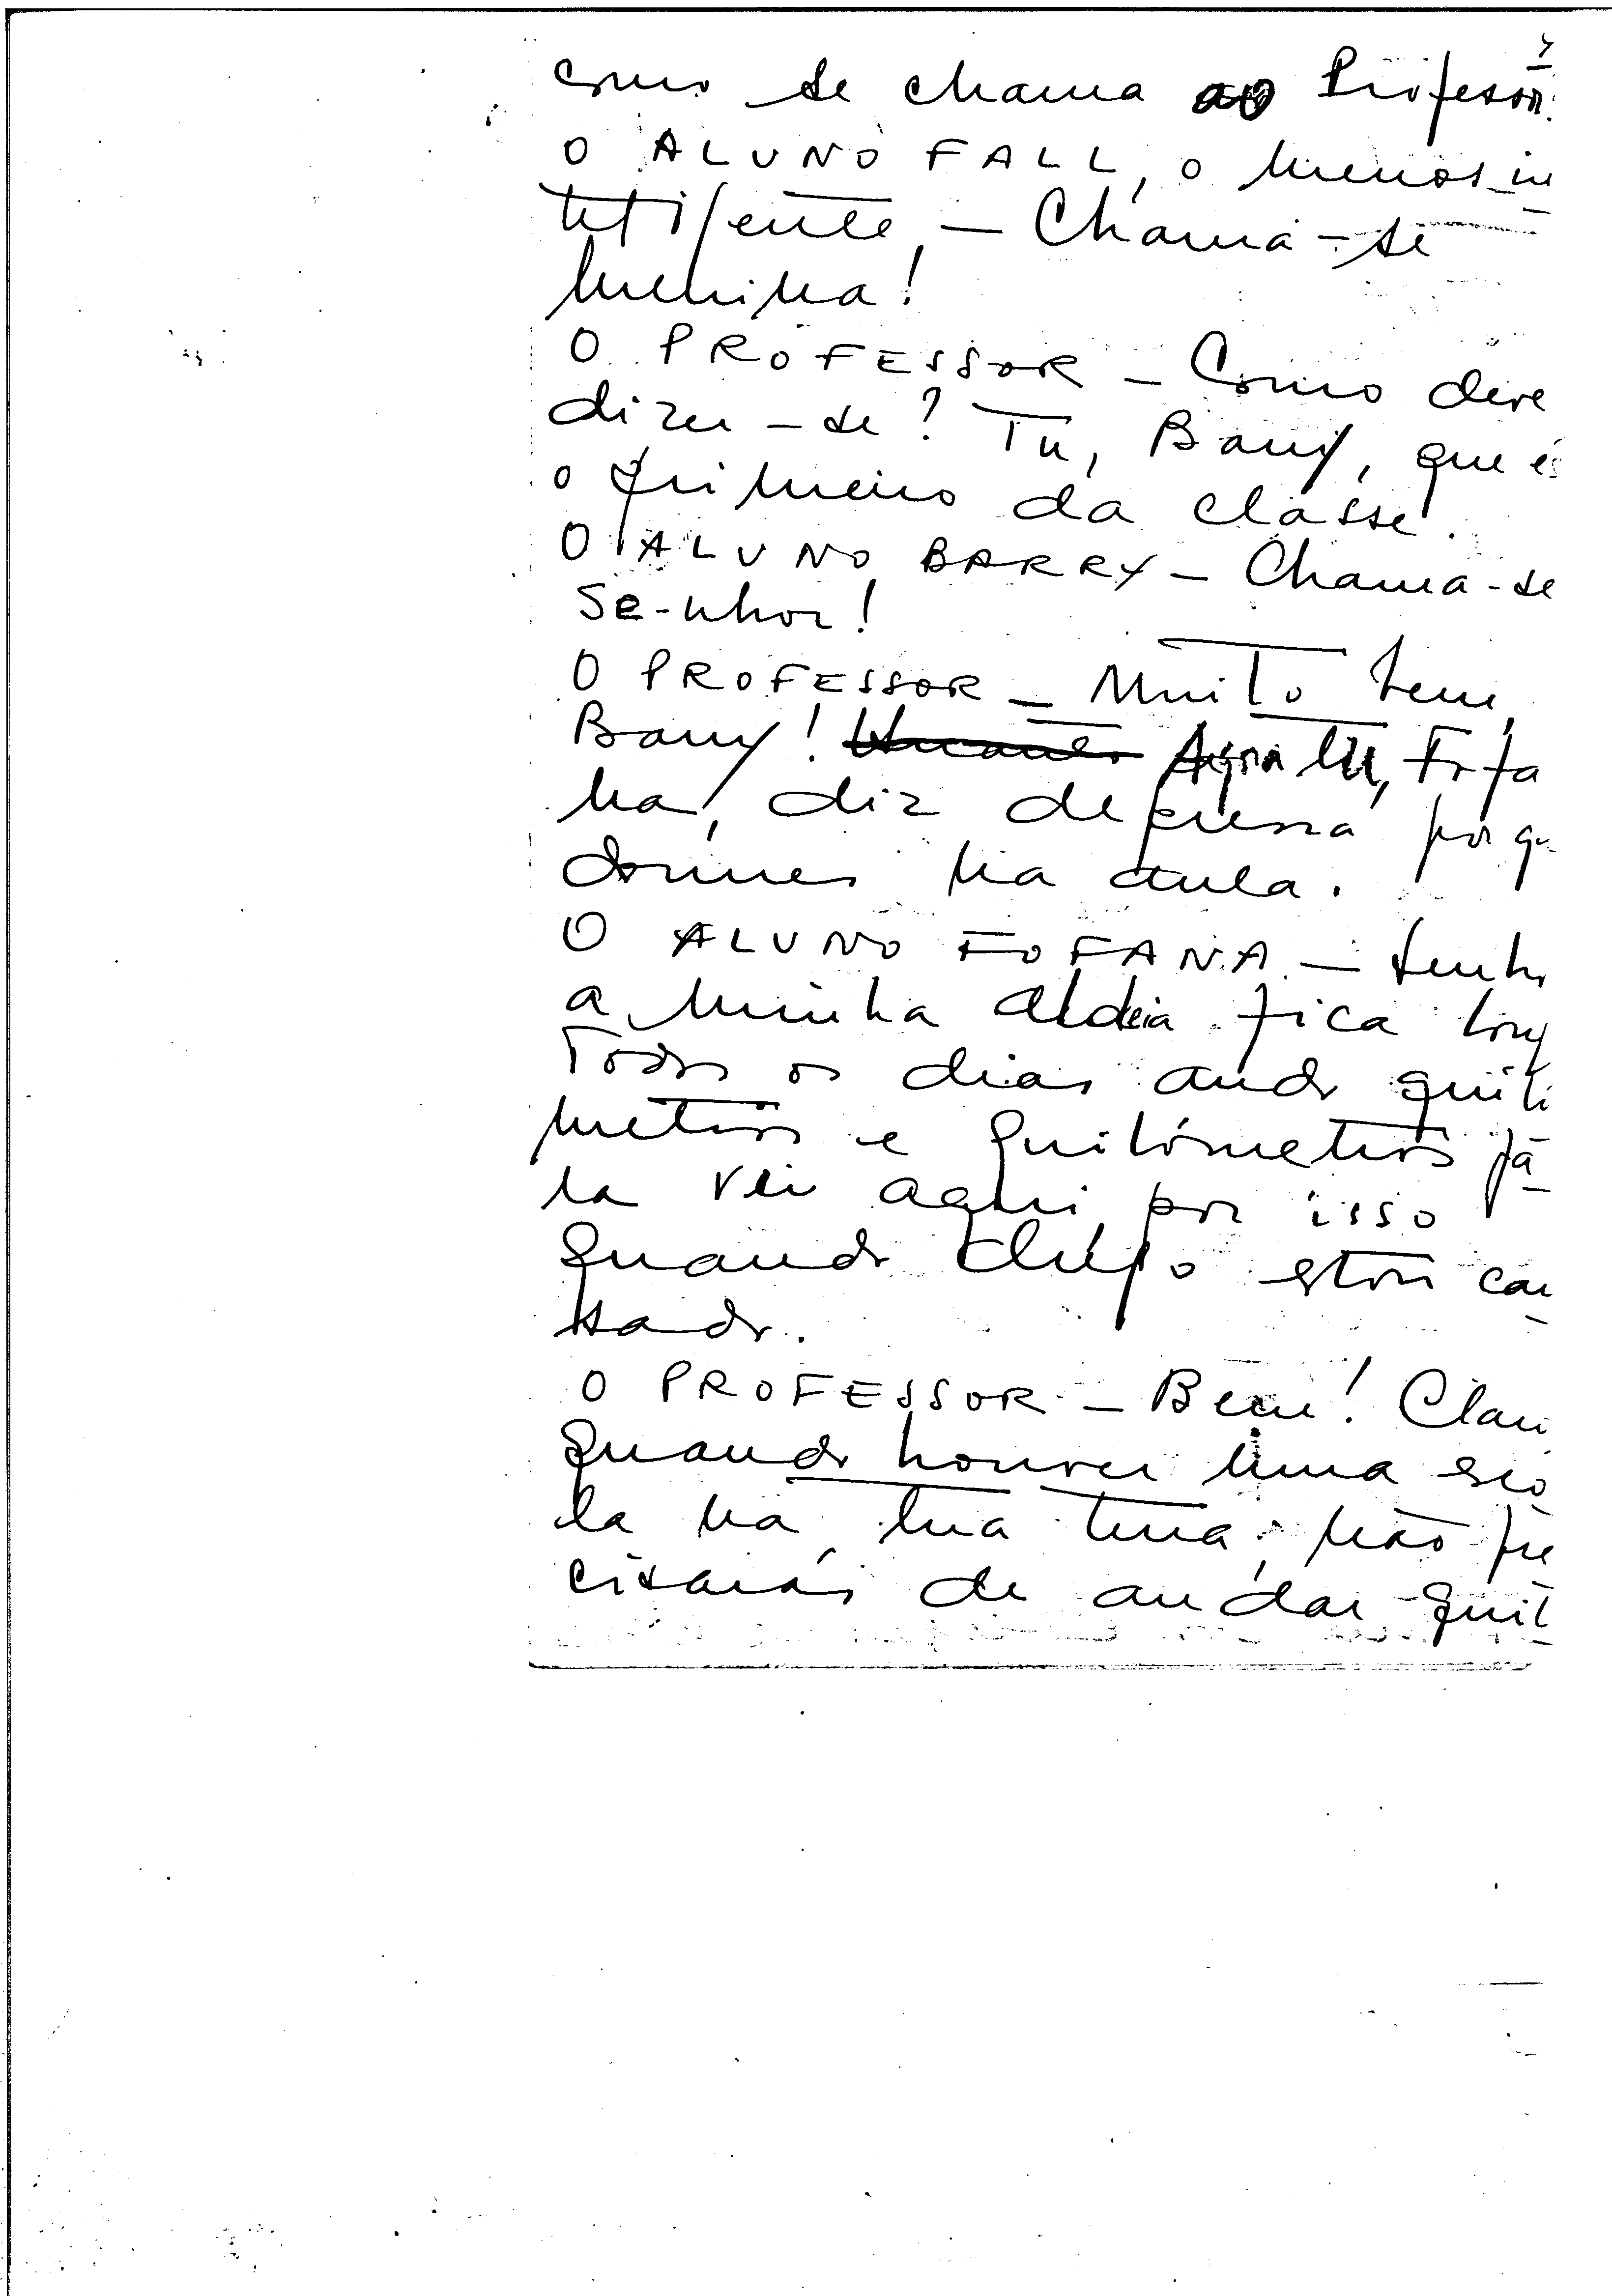 como se chama ao Professor.
O ALUNO FALL, o menos in
teligente, — Chama-se
menina!
O PROFESSOR — Como deve
dizer-se? Tu, Barry, que és
o primeiro da classe.
O ALUNO BARRY — Chama-se
Se-nhor!
O PROFESSOR — Muito bem,
Barry! Agora tu, Fofa
na, diz depressa por q
dormes na aula.
O ALUNO FOFANA — Senho
a minha aldeia fica long
Todos os dias ando quiló
metros e quilómetros pa
ra vir aqui por isso
quando chego estou can
sado.
O PROFESSOR — Bem! Clar
quando houver uma esco
la na tua terra, não pre
cisarás de andar quil